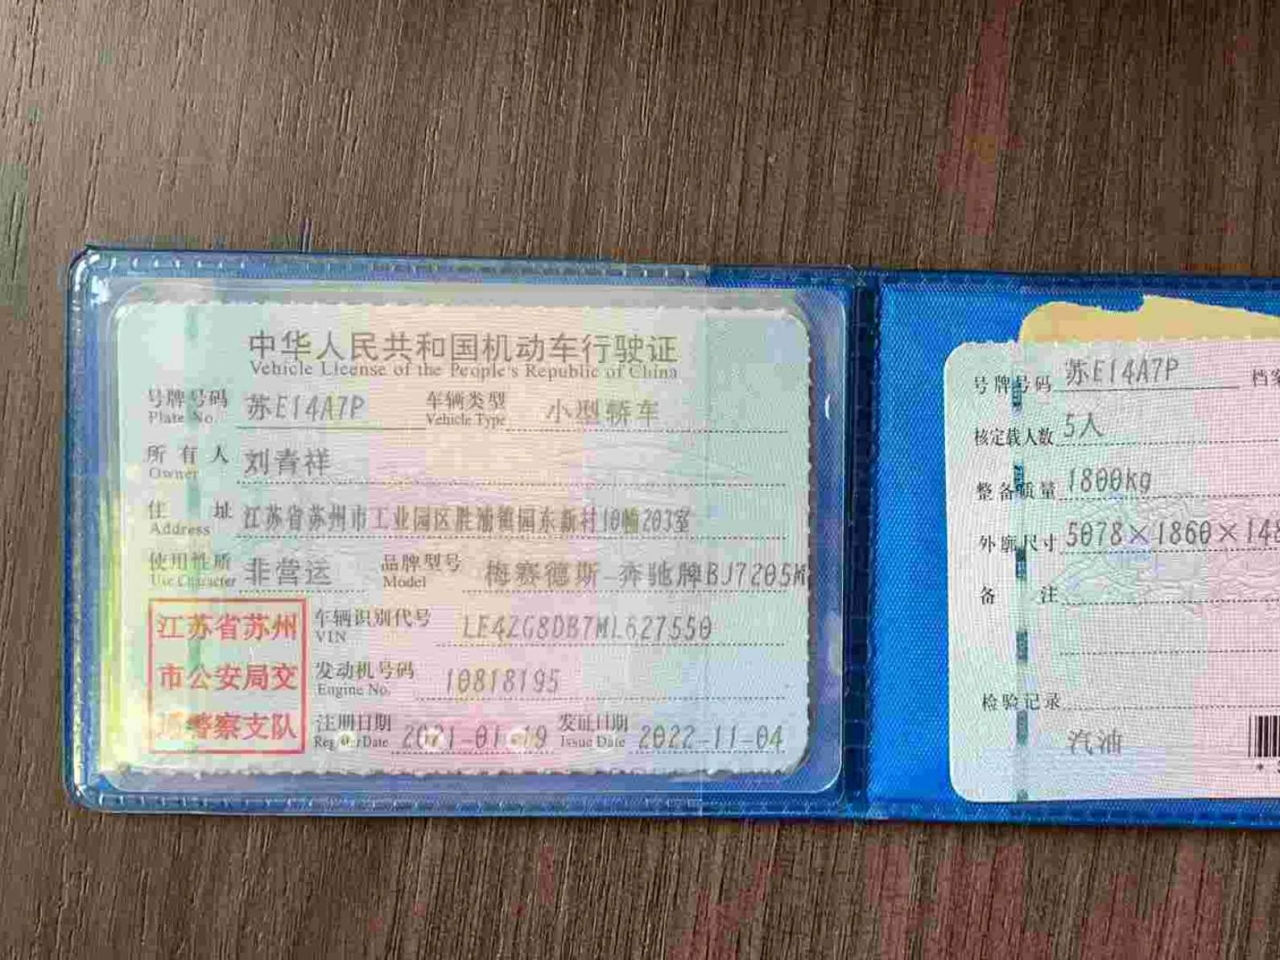 中华人民共和国机动车行驶证
Vehicle License of the People's Republic of China
号牌号码 苏E14A7P 车辆类型 小型轿车
Plate No. Vehicle Type
所有人 刘青祥
Owner
住址 江苏省苏州市工业园区胜浦镇园东新村10幢203室
Address
使用性质 非营运 品牌型号 梅赛德斯-奔驰牌BJ7205M
Use Character Model
江苏省苏州
市公安局交
警察支队
车辆识别代号 LE4ZG8DB7ML627550
VIN
发动机号码 10818195
Engine No.
注册日期 2021-01-19 发证日期 2022-11-04
Register Date Issue Date
号牌号码 苏E14A7P 档案
核定载人数 5人
整备质量 1800kg
外廓尺寸 5078×1860×148
备注
检验记录
汽油